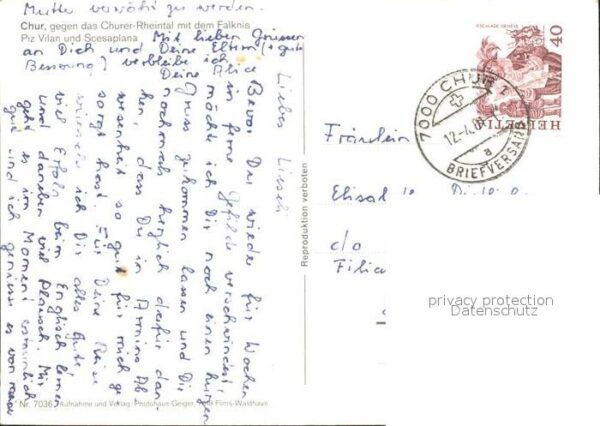 Mutter verwöhnt zu werden.
Chur, gegen das Churer-Rheintal mit dem Falknis
Piz Vilan und Scesaplana
Mit lieben Grüssen
an Dich und Deine Eltern (+ gute
Besserung) verbleibe ich
Deine Alice
Liebes Lisseli
Bevor Du wieder für Wochen
in ferne Gefilde verschwindest
möchte ich Dir noch einen kurzen
Gruss zukommen lassen und Dir
nochmals herzlich dafür dan-
ken, dass Du in Armins Ab-
wesenheit so gut für mich ge-
sorgt hast. Für Deine Reise
wünsche ich Dir alles Gute,
viel Erfolg beim Englisch lernen
und daneben viel Plausch. Mir
geht es im Moment
gut und ich geniesse es von meiner
Nr. 7036 Aufnahme und Verlag: Photohaus Geiger, Flims-Waldhaus
Reproduktion verboten
ESCALADE GENÈVE
40
HELVETIA
7000 CHUR 1
12.-4.
a
BRIEFVERSAND
Fräulein
c/o
privacy protection
Datenschutz